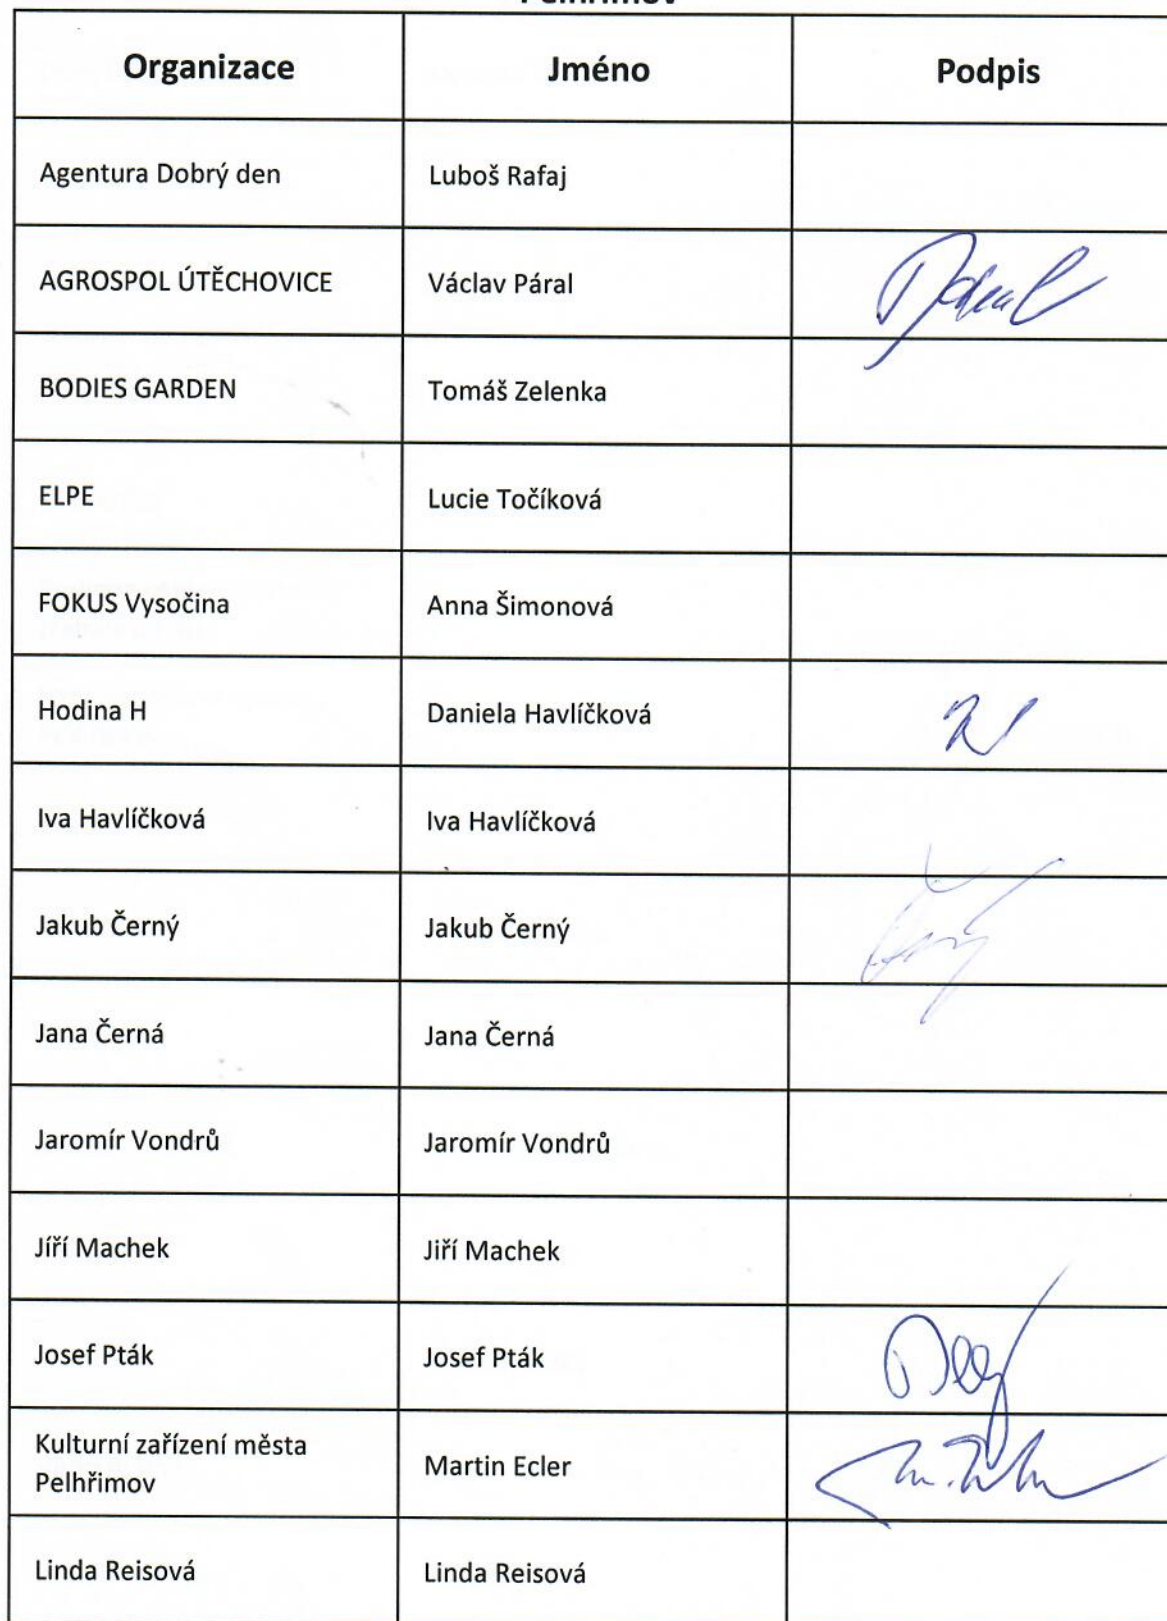 Organizace Jméno Podpis
Agentura Dobrý den Luboš Rafaj
AGROSPOL ÚTĚCHOVICE Václav Páral
BODIES GARDEN Tomáš Zelenka
ELPE Lucie Točíková
FOKUS Vysočina Anna Šimonová
Hodina H Daniela Havlíčková
Iva Havlíčková Iva Havlíčková
Jakub Černý Jakub Černý
Jana Černá Jana Černá
Jaromír Vondrů Jaromír Vondrů
Jíří Machek Jiří Machek
Josef Pták Josef Pták
Kulturní zařízení města
Pelhřimov Martin Ecler
Linda Reisová Linda Reisová